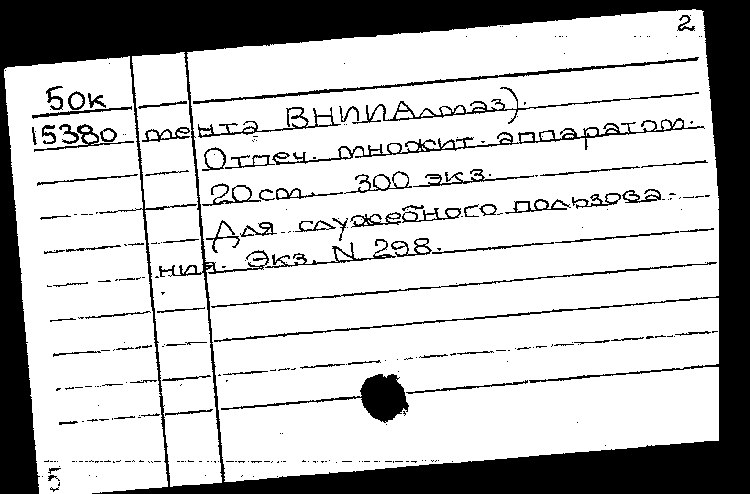 2
50к
15380 тента ВНИИАлмаз).
Отпеч. множит. аппаратом.
20 см. 300 экз.
Для служебного пользова-
ния. Экз. N 298.
5